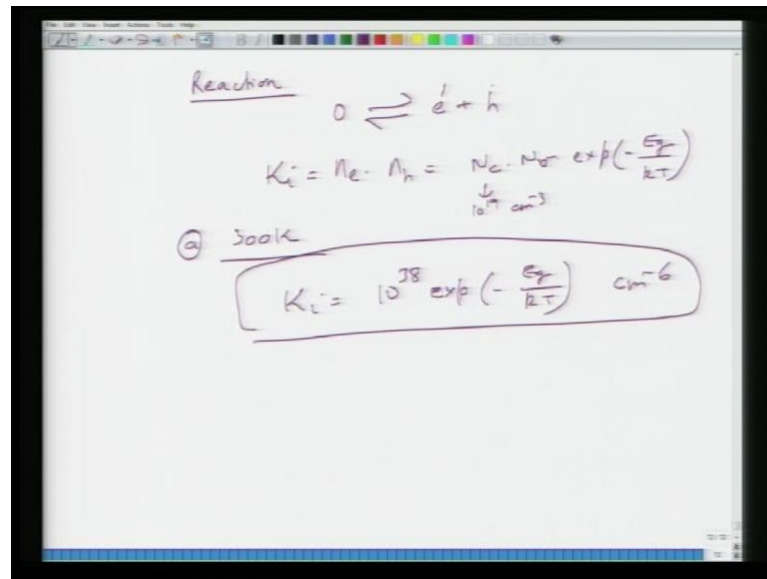 File Edit View Insert Actions Tools Help
Reaction
0 ⇌ e' + h˙
Ki = ne · nh = Nc · Nv exp(-Eg/kT)
↓
10^19 cm^-3
@ 300K
Ki = 10^38 exp(-Eg/kT) cm^-6